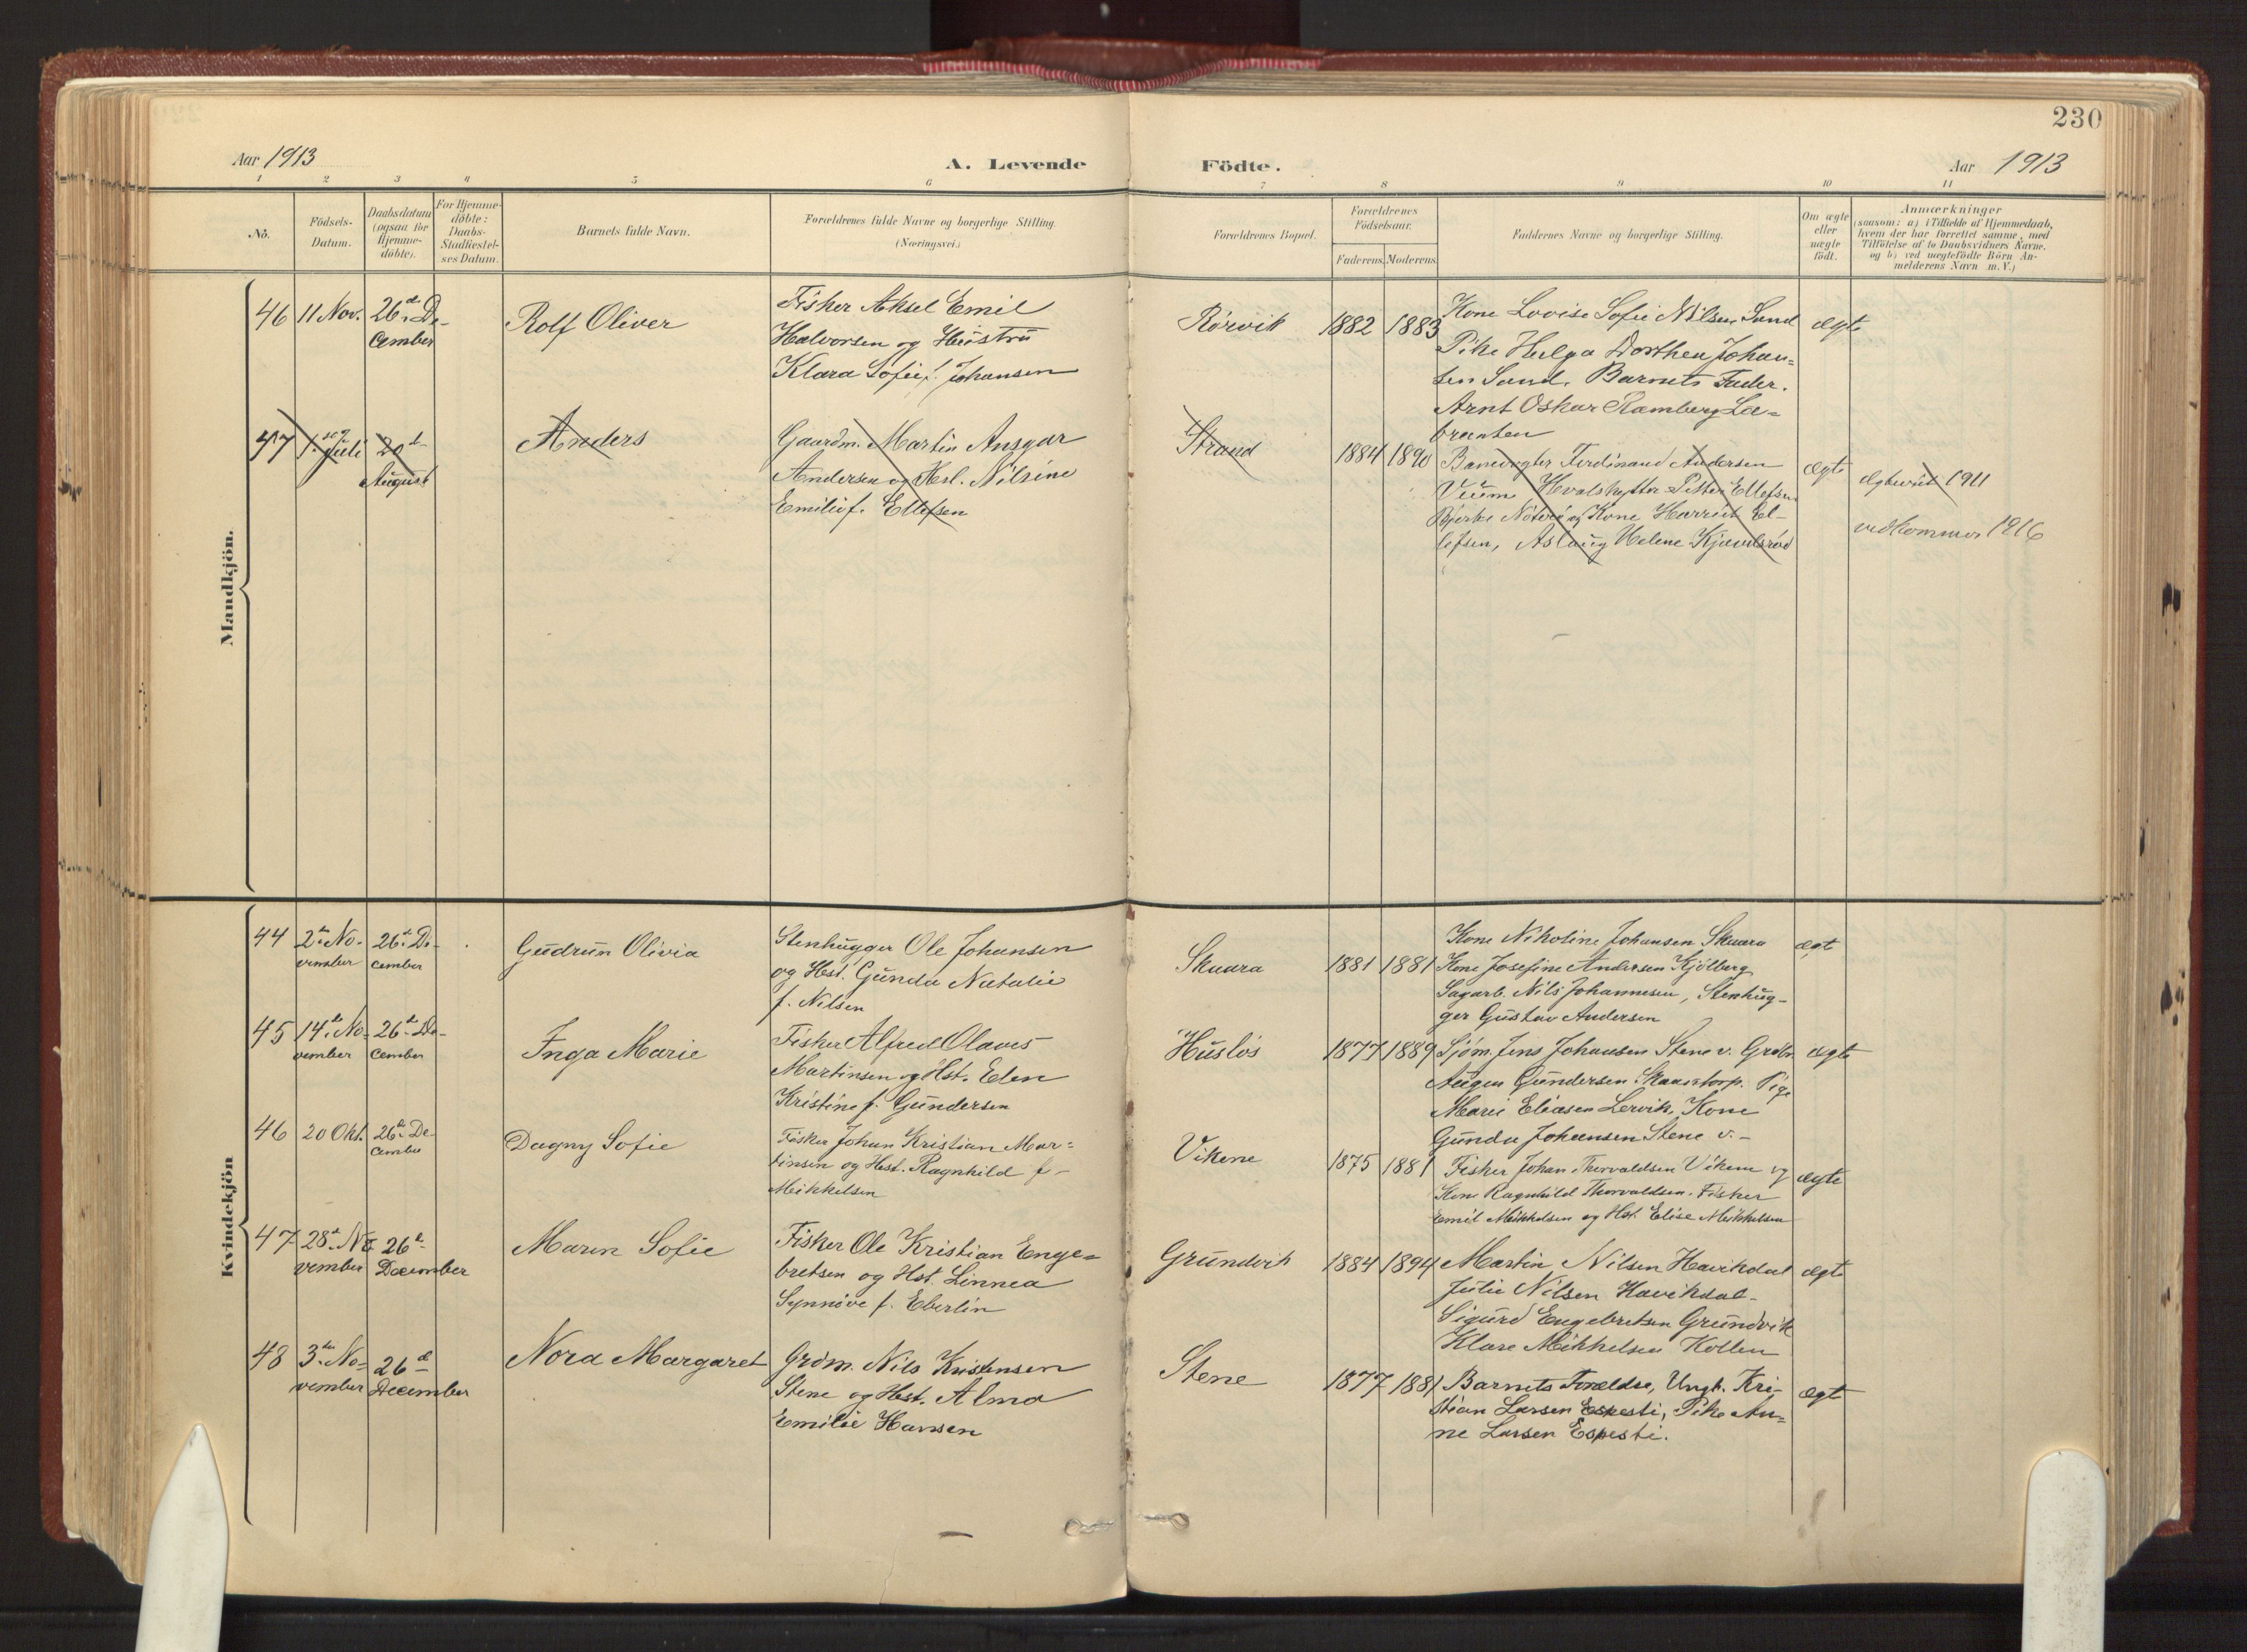 230
Aar 1913
A. Levende
Födte.
Aar 1913
1 2 3 4 5 6 7 8 9 10 11
No.
Födsels-
Datum.
Daabsdatum
(ogsaa for
Hjemme-
döbte).
For Hjemme-
döbte:
Daabs-
Stadfæstel-
ses Datum.
Barnets fulde Navn.
Forældrenes fulde Navne og borgerlige Stilling.
(Næringsvei.)
Forældrenes Bopæl.
Forældrenes
Födselsaar.
Faderens. Moderens.
Faddernes Navne og borgerlige Stilling.
Om ægte
eller
uægte
födt.
Anmærkninger
(saasom: a) i Tilfælde af Hjemmedaab,
hvem der har forrettet samme, med
Tilföielse af to Daabsvidners Navne.
og b) ved uægtefödte Börn An-
melderens Navn m. V.)
Mandkjön.
46
11 Nov.
26d De-
cember
Rolf Oliver
Fisker Aksel Emil
Halvorsen og Hustru
Klara Sofie f. Johansen
Rørvik
1882
1883
Kone Lovise Sofie Nilsen Sand
Pike Helga Dorthea Johan-
sen Sand. Barnets Fader.
Arnt Oskar Ramberg
ægte
47
1. Juli
20d
August
Anders
Gaardm. Martin Ansgar
Andersen og Hst. Nilsine
Emilie f. Ellefsen
Strand
1884
1890
Banevogter Ferdinand Andersen
Veum Hvalskytter Petter Ellefsen
Bjerke Nøterø og Kone Harriet El-
lefsen, Aslaug Helene
ægte
1911
vedkommer 1916
Kvindekjön
44
2d No-
vember
26d De-
cember
Gudrun Olivia
Stenhugger Ole Johansen
og Hst. Gunda Natalie
f. Nilsen
Skaara
1881
1881
Kone Nikoline Johansen Skaara
Kone Josefine Andersen Kjølberg
Sagarb. Nils Johannesen, Stenhug-
ger Gustav Andersen
ægt
45
14d No-
vember
26d De-
cember
Inga Marie
Fisker Alfred Olaves
Martinsen og Hst. Elen
Kristine f. Gundersen
Husløs
1877
1889
Sjøm. Jens Johansen Stene v. Grdbr.
Augen Gundersen Skaartorp. Pige
Marie Eliasen Lervik, Kone
Gunda Johansen Stene v.-
ægte
46
20 Okt.
26d De-
cember
Dagny Sofie
Fisker Johan Kristian Mar-
tinsen og Hst. Ragnhild f-
Mikkelsen
Vikene
1875
1881
Fisker Johan Thorvaldsen Vikene og
Kone Ragnhild Thorvaldsen. Fisker
Emil Mikkelsen og Hst. Elise Mikkelsen
ægte
47
28d No-
vember
26d
December
Maren Sofie
Fisker Ole Kristian Enge-
bretsen og Hst. Linnea
Synnøve f. Eberlin
Grundvik
1884
1894
Martin Nilsen Havikdal
Julie Nilsen Havikdal-
Sigurd Engebretsen Grundvik
Klare Mikkelsen Kollen
ægte
48
3de No-
vember
26d
December
Nora Margaret
Grdm. Nils Kristensen
Stene og Hst. Alma
Emilie Hansen
Stene
1877
1881
Barnets Forældre, Ungk. Kri-
stian Larsen Espesti, Pike An-
ne Larsen Espesti.
ægt